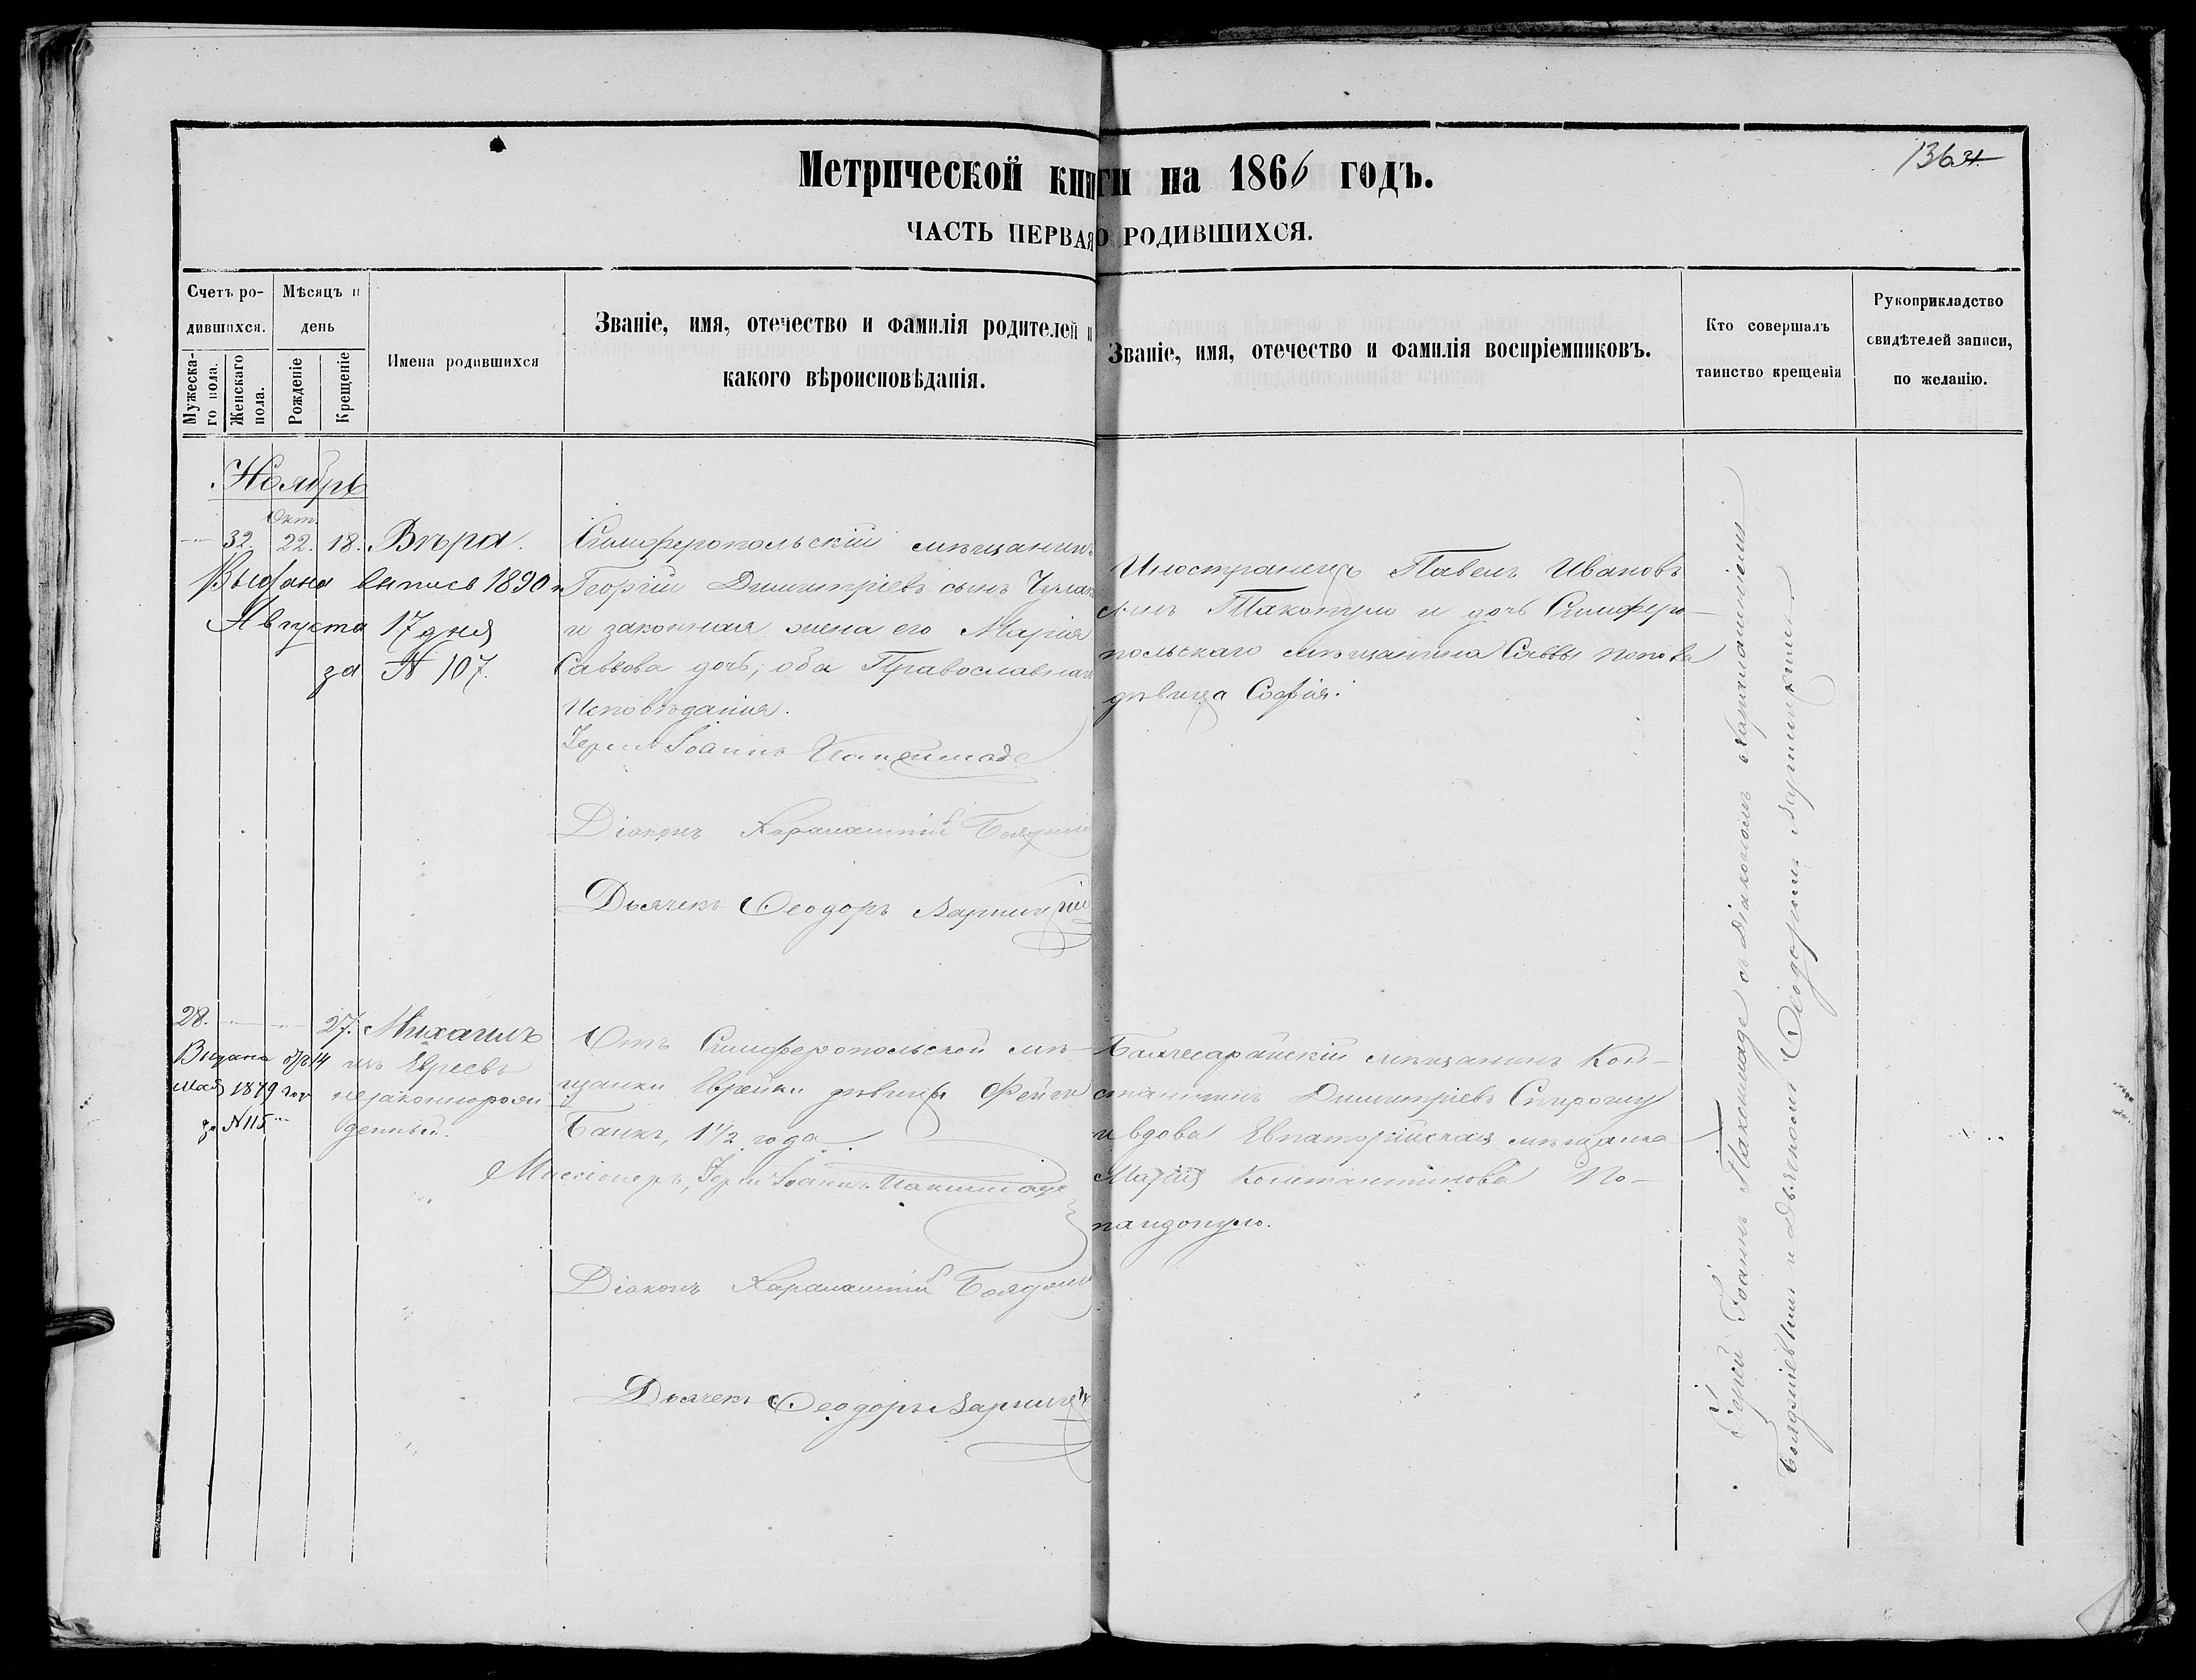 Метрической книги на 1866 годъ.
136
ЧАСТЬ ПЕРВАЯ О РОДИВШИХСЯ.
Счетъ ро-
дившихся.
Мужеска-
го пола.
Женскаго
пола.
Мѣсяцъ и
день
Рожденіе
Крещеніе
Имена родившихся
Званіе, имя, отечество и фамилія родителей и
какого вѣроисповѣданія.
Званіе, имя, отечество и фамилія воспріемниковъ.
Кто совершалъ
таинство крещенія
Рукоприкладство
свидѣтелей записи,
по желанію.
Ноябрь
Окт.
32. 22. 18. Вѣра.
Выдана выпись 1890
Августа 17 дня
за № 107.
Симферопольскій мѣщанинъ
Георгій Димитріевъ сынъ
и законная жена его Марія
Саввова дочь; оба Православнаго
Исповѣданія.
Іерей Іоаннъ
Діаконъ Харлампій
Дьячекъ Ѳеодоръ
Иностранецъ Павелъ Ивановъ
сынъ и дочь Симферо-
польскаго мѣщанина Саввы Попова
дѣвица Софія.
28. 27. Михаилъ
изъ Евреевъ
незаконнорож
денный.
Выдана 14
мая 1879 года
за № 115
Отъ Симферопольской мѣ-
щанки Еврейки дѣвицы Фейги
1 1/2 года
Миссіонеръ, Іерей Іоаннъ
Діаконъ Харлампій
Дьячекъ Ѳеодоръ
Бахчесарайскій мѣщанинъ Кон-
стантинъ Димитріевъ
и вдова Евпаторійская мѣщанка
Марія Константинова По-
пандопуло.
Іерей Іоаннъ съ Діакономъ Харлампіемъ
и Дьячкомъ Ѳеодоромъ